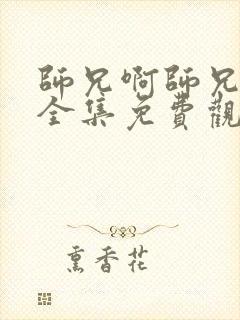 師兄啊師兄
全集免費觀
熏香花